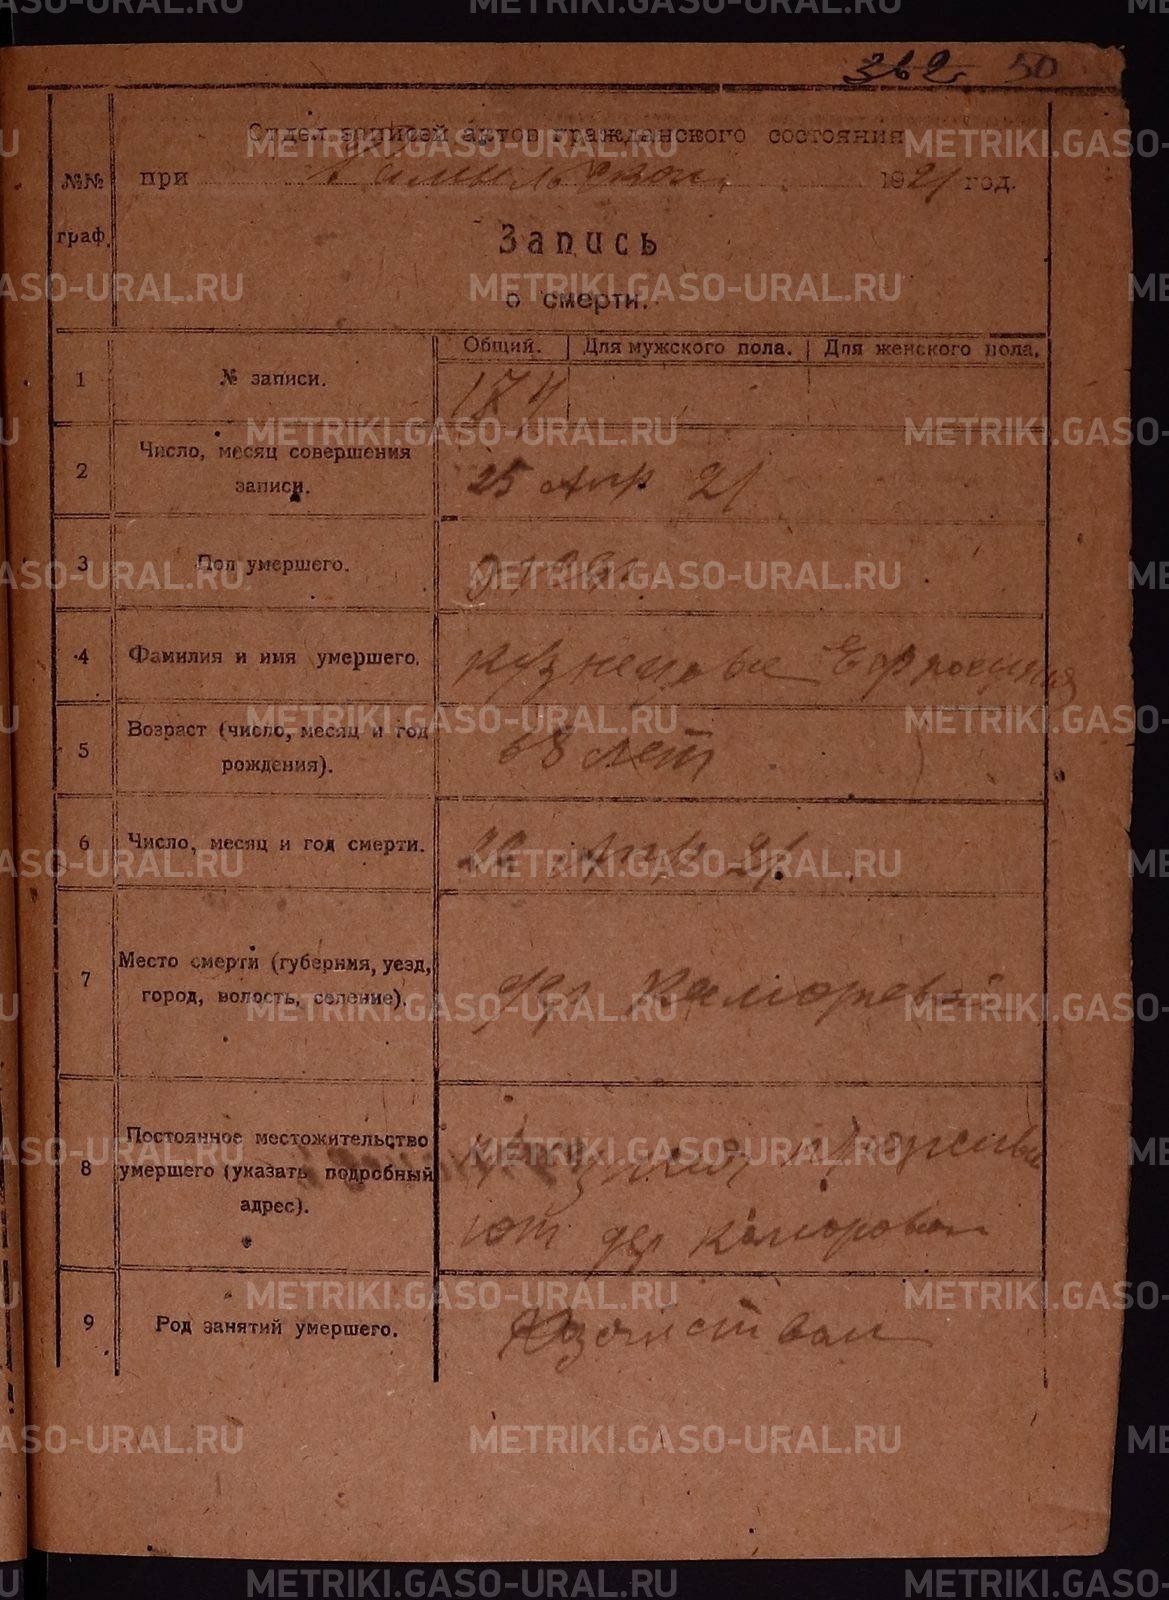 362 50
Отдел записей актов гражданского состояния
при 1921 год.
№№ граф.
Запись
о смерти.
Общий. Для мужского пола. Для женского пола.
1 № записи. 174
2 Число, месяц совершения
записи. 25 Апр 21
3 Пол умершего.
4 Фамилия и имя умершего. Кузнецова Ефросиния
5 Возраст (число, месяц и год
рождения). 68 лет
6 Число, месяц и год смерти. Апр 21
7 Место смерти (губерния, уезд,
город, волость, селение). дер
8 Постоянное местожительство
умершего (указать подробный
адрес). дер
9 Род занятий умершего.
METRIKI.GASO-URAL.RU